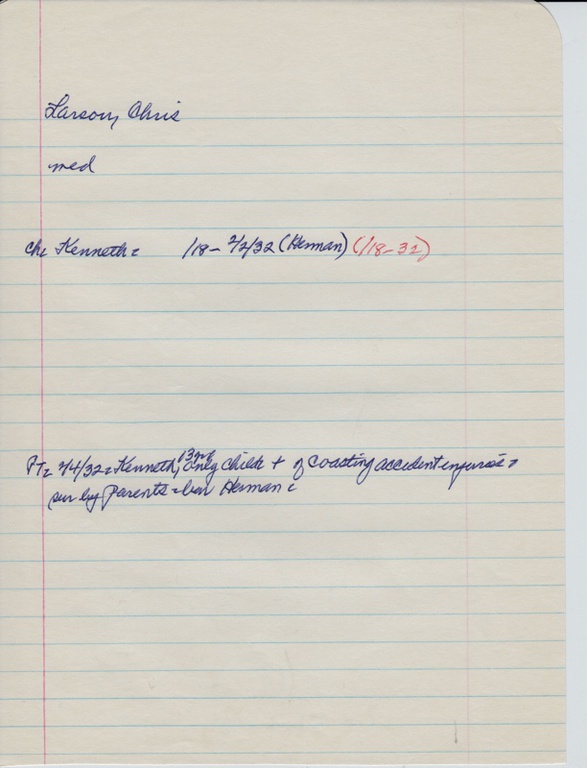 Larson, Chris
med
ch: Kenneth = /18 - 2/2/32 (Herman) (/18-32)
13 yr
PT= 2/4/32 = Kenneth, only child + of coasting accident injuries =
sur by parents = bur Herman =